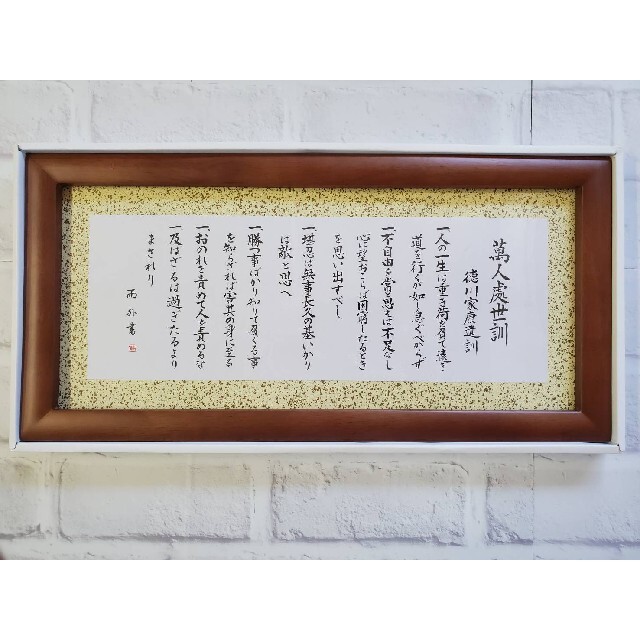 萬人處世訓
徳川家康遺訓
一、人の一生は重き荷を負て遠き
道を行くが如し急ぐべからず
一、不自由を常と思えば不足なし
心に望おこらば困窮したるとき
を思い出すべし
一、堪忍は無事長久の基いかり
は敵と思へ
一、勝つ事ばかり知りて負くる事
を知らざれば害其の身に至る
一、おのれを責めて人を責めるな
一、及ばざるは過ぎたるより
まされり
書